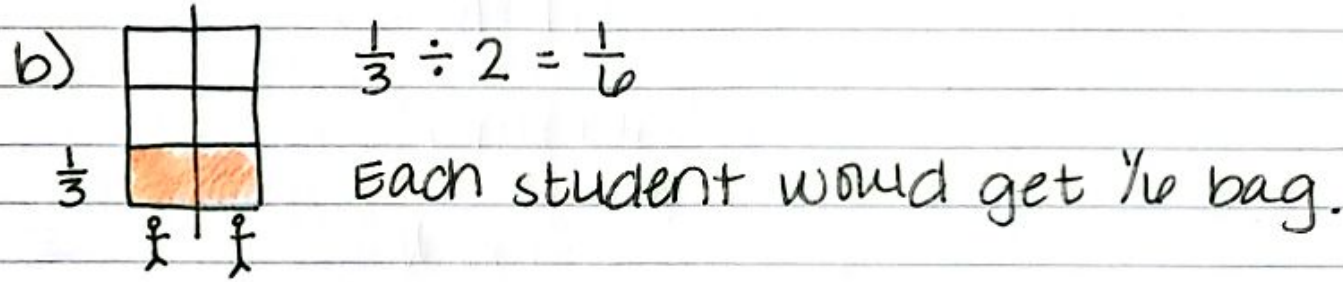 b)
1/3 ÷ 2 = 1/6
1/3
Each student would get 1/6 bag.